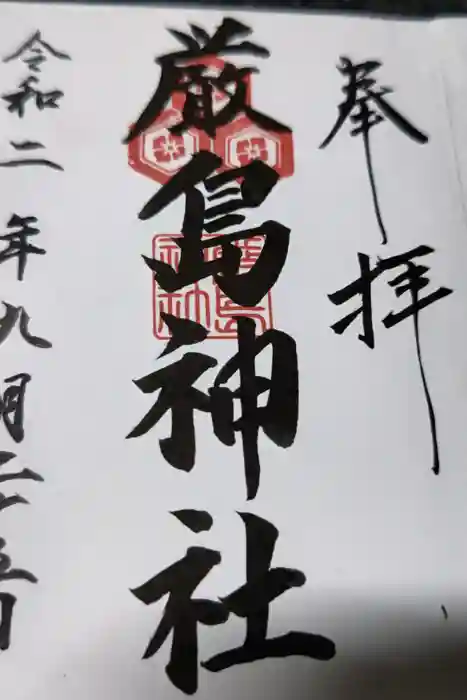 奉拝
厳島神社
厳島神社
令和二年九月二十五日